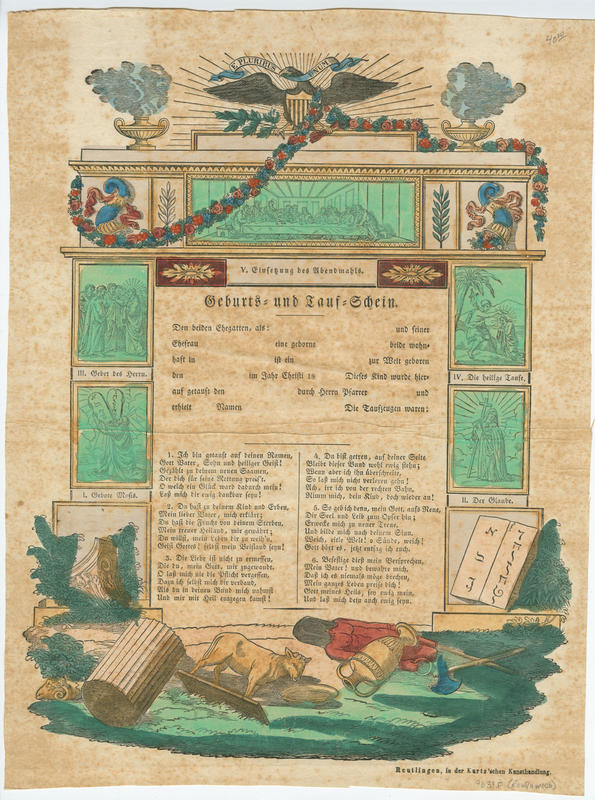 40.00
E PLURIBUS UNUM
V. Einsetzung des Abendmahls.
Geburts- und Tauf-Schein.
Den beiden Ehegatten, als: und seiner
Ehefrau eine geborne beide wohn-
haft in ist ein zur Welt geboren
den im Jahr Christi 18 Dieses Kind wurde hier-
auf getauft den durch Herrn Pfarrer und
erhielt Namen Die Taufzeugen waren:
III. Gebet des Herrn.
IV. Die heilige Taufe.
I. Gebote Mosis.
II. Der Glaube.
1. Ich bin getauft auf deinen Namen,
Gott Vater, Sohn und heiliger Geist!
Gezählt zu deinem neuen Saamen,
Der dich für seine Rettung preis't.
O welch ein Glück ward dadurch mein!
Laß mich dir ewig dankbar seyn!
2. Du hast zu deinem Kind und Erben,
Mein lieber Vater, mich erklärt;
Du hast die Frucht von deinem Sterben,
Mein treuer Heiland, mir gewährt;
Du willst, mein Leben dir zu weih'n,
Geist Gottes! selbst mein Beistand seyn!
3. Die Liebe ist nicht zu ermessen,
Die du, mein Gott, mir zugewandt.
O laß mich nie die Pflicht vergessen,
Dazu ich selbst mich dir verband,
Als du in deinen Bund mich nahmst
Und mir mit Heil entgegen kamst!
4. Du bist getreu, auf deiner Seite
Bleibt dieser Bund wohl ewig stehn;
Wenn aber ich ihn überschreite,
So laß mich nicht verloren gehn!
Ach, irr ich von der rechten Bahn,
Nimm mich, dein Kind, doch wieder an!
5. So geb ich denn, mein Gott, aufs Neue,
Dir Seel und Leib zum Opfer hin;
Erwecke mich zu neuer Treue,
Und bilde mich nach deinem Sinn.
Weich, eitle Welt! o Sünde, weich!
Gott hört es, jetzt entsag ich euch.
6. Befestige dieß mein Versprechen,
Mein Vater! und bewahre mich,
Daß ich es niemals möge brechen,
Mein ganzes Leben preise dich!
Gott meines Heils, sey ewig mein,
Und laß mich dein auch ewig seyn.
Reutlingen, in der Kurtz'schen Kunsthandlung.